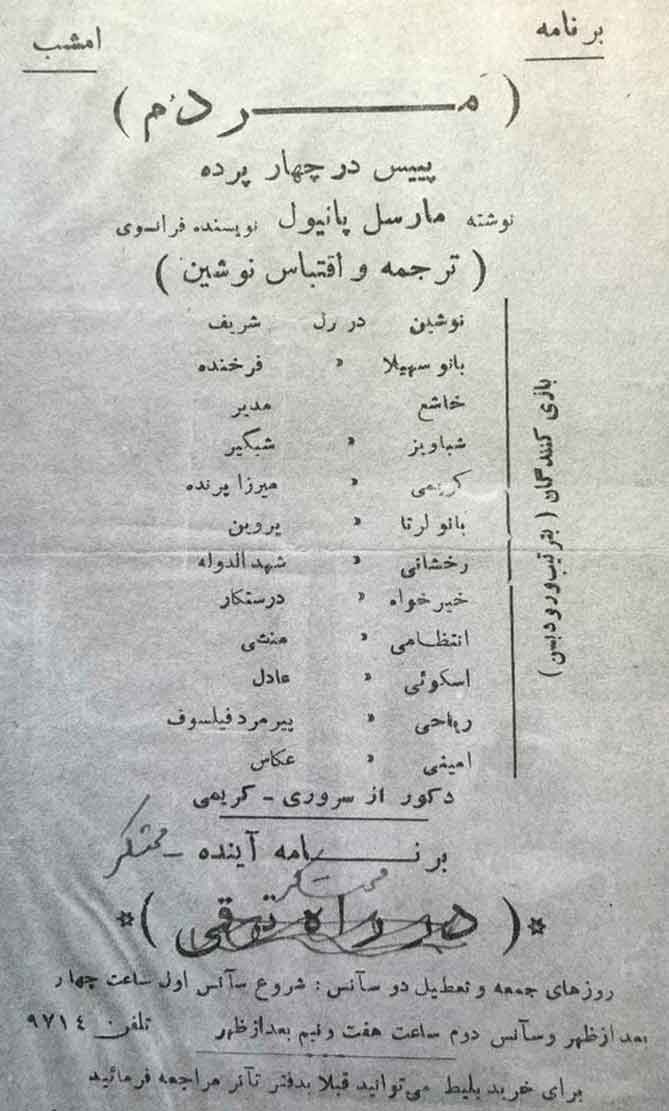 برنامه امشب
( مردُم )
پییس در چهار پرده
نوشته مارسل پانیول نویسنده فرانسوی
( ترجمه و اقتباس نوشین )
بازی کنندگان ( بترتیب ورود بسن )
نوشین در رل شریف
بانو سهیلا » فرخنده
خاشع مدیر
شباویز » شبگیر
کریمی » میرزا پرنده
بانو لرتا » پروین
رخشانی » شهدالدوله
خیرخواه » درستکار
انتظامی » منشی
اسکوئی » عادل
ریاحی » پیرمرد فیلسوف
امینی » عکاس
دکور از سروری - کریمی
برنامه آینده - محتکر
محتکر
( در راه ترقی )
روزهای جمعه و تعطیل دو سآنس : شروع سآنس اول ساعت چهار
بعد از ظهر و سآنس دوم ساعت هفت و نیم بعد از ظهر تلفن ۹۷۱۴
برای خرید بلیط می‌توانید قبلا بدفتر تآتر مراجعه فرمائید